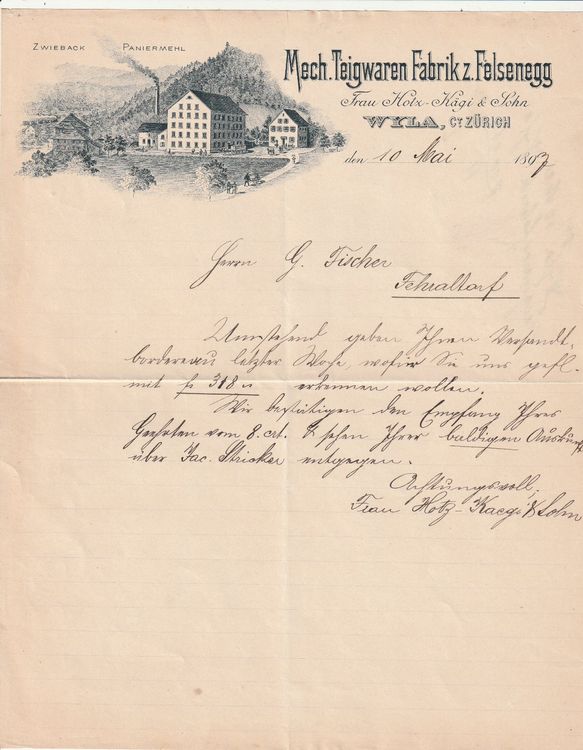 ZWIEBACK PANIERMEHL
Mech. Teigwaren Fabrik z. Felsenegg
Frau Hotz-Kägi & Sohn
WYLA, CT. ZÜRICH
den 10 Mai 18
Herrn G. Fischer
Fehraltorf
Umstehend geben Ihnen Versandt-
bordereau letzter Woche, wofür Sie uns gefl.
mit fs 318 erkennen wollen.
Wir bestätigen den Empfang Ihres
Geehrten vom 8. crt. & sehen Ihrer baldigen Auskunft
über Jac. Stricker entgegen.
Achtungsvoll
Frau Hotz-Kaegi & Sohn